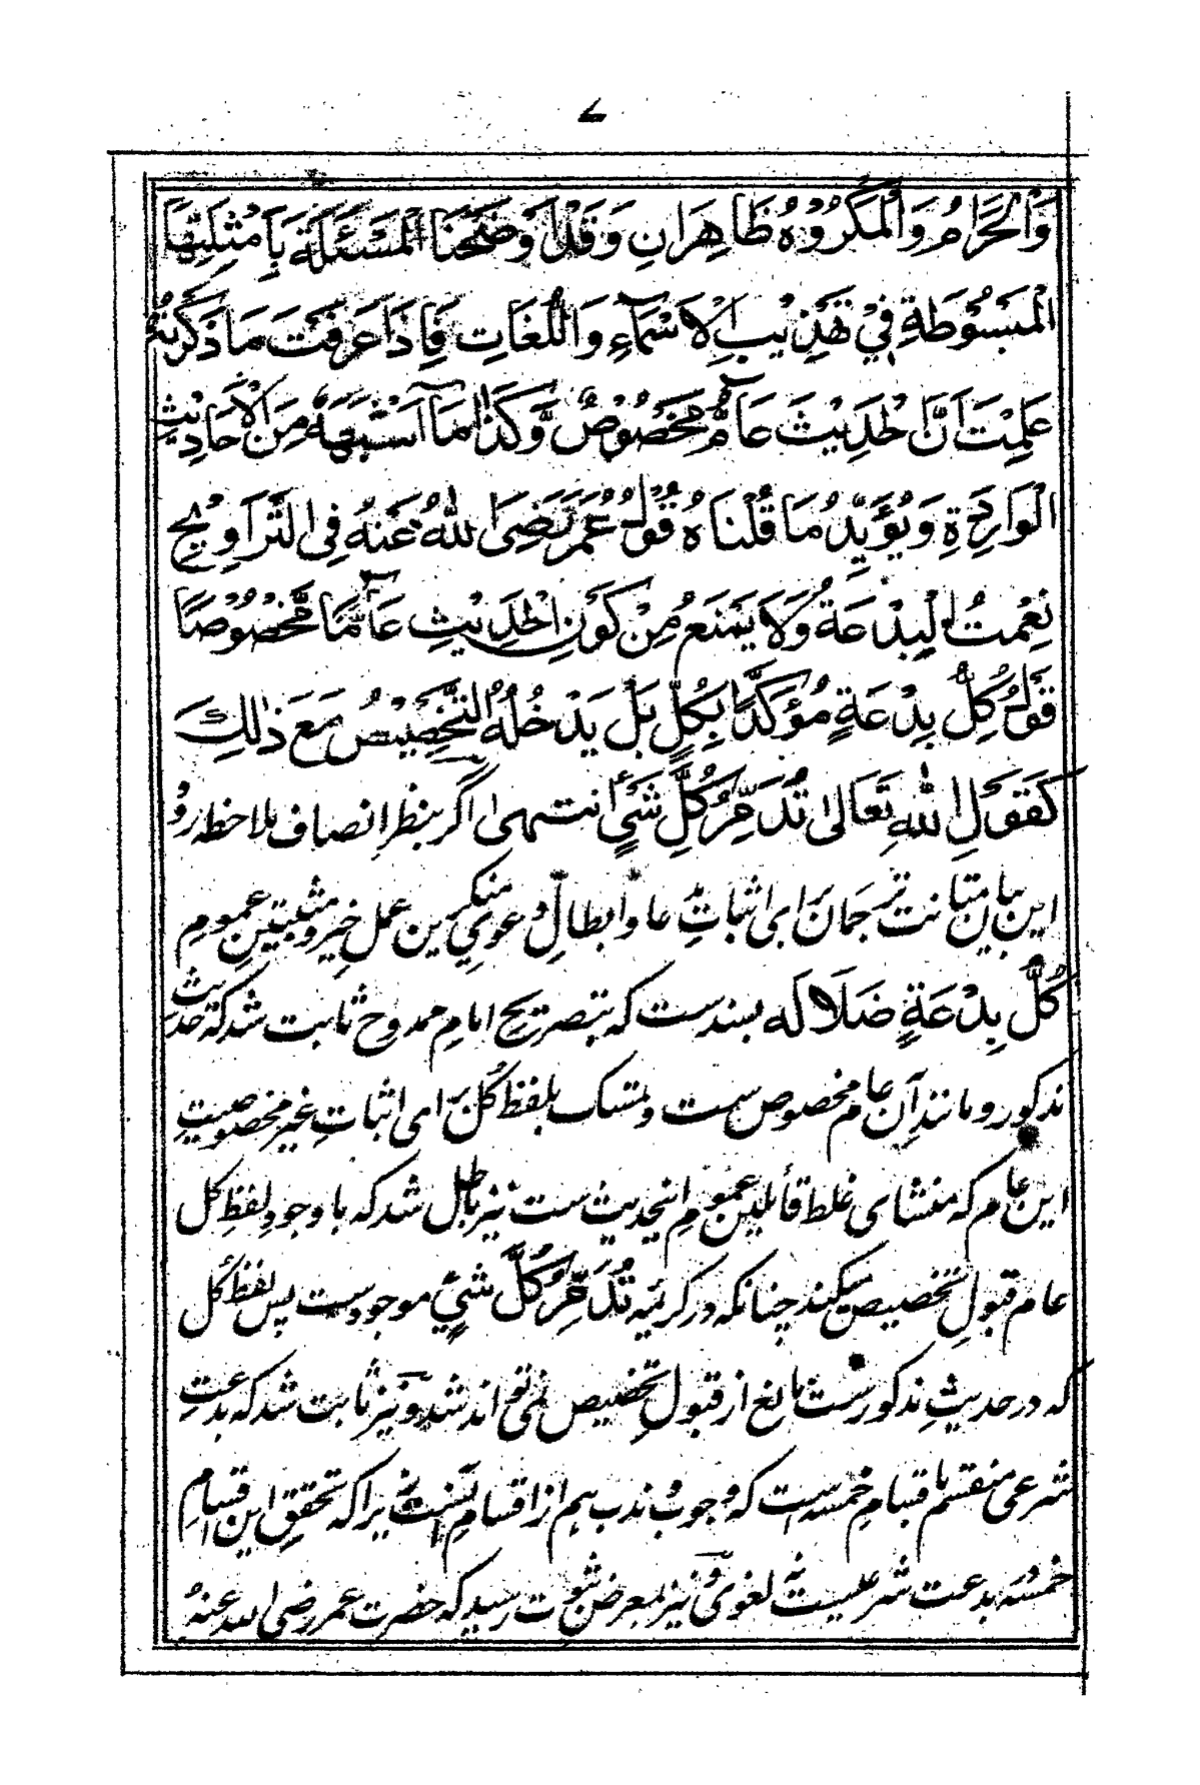 ۷
وَالْحَرَامُ وَالْمَكْرُوْهُ ظَاهِرَانِ وَقَدْ وَضَّحْنَا الْمَسْئَلَةَ بِاَمْثِلَتِهَا
الْمَبْسُوْطَةِ فِيْ تَهْذِيْبِ الْاَسْمَاءِ وَاللُّغَاتِ فَاِذَا عَرَفْتَ مَا ذَكَرْتُهُ
عَلِمْتَ اَنَّ الْحَدِيْثَ عَامٌّ مَّخْصُوْصٌ وَّكَذَا مَا اَشْبَهَهٗ مِنَ الْاَحَادِيْثِ
الْوَارِدَةِ وَيُؤَيِّدُ مَا قُلْنَاهُ قَوْلُ عُمَرَ رَضِيَ اللّٰهُ عَنْهُ فِي التَّرَاوِيْحِ
نِعْمَتُ الْبِدْعَةُ وَلَا يَمْنَعُ مِنْ كَوْنِ الْحَدِيْثِ عَامًّا مَّخْصُوْصًا
قَوْلُهُ كُلُّ بِدْعَةٍ مُؤَكَّدًا بِكُلٍّ بَلْ يَدْخُلُهُ التَّخْصِيْصُ مَعَ ذٰلِكَ
كَقَوْلِ اللّٰهِ تَعَالٰى تُدَمِّرُ كُلَّ شَيْءٍ انتهى اگر بنظر انصاف ملاحظه رو
این بیان متانت ترجمان برای اثبات مدعا و ابطال دعوی منکرین عمل خیر و مثبتین عموم
كُلُّ بِدْعَةٍ ضَلَالَه بسندست که بتصریح امام ممدوح ثابت شد که حدیث
مذکور و مانند آن عام مخصوص ست و تمسک بلفظ کُل برای اثبات غیر مخصوصیت
این عام که منشای غلط قائلین عموم اینحدیث ست نیز باطل شد که با وجود لفظ کل
عام قبول تخصیص میکند چنانکه در کریمه تُدَمِّرُ كُلَّ شَيْءٍ موجودست پس لفظ کُل
که در حدیث مذکورست مانع از قبول تخصیص نمی تواند شد و نیز ثابت شد که بدعت
شرعی منقسم باقسام خمسه است که وجوب و ندب هم از اقسام آنست زیرا که تحقق این اقسام
خمسه بدعت شرعیست نه لغوی و نیز بمعرض ثبوت رسید که حضرت عمر رضی الله عنهُ